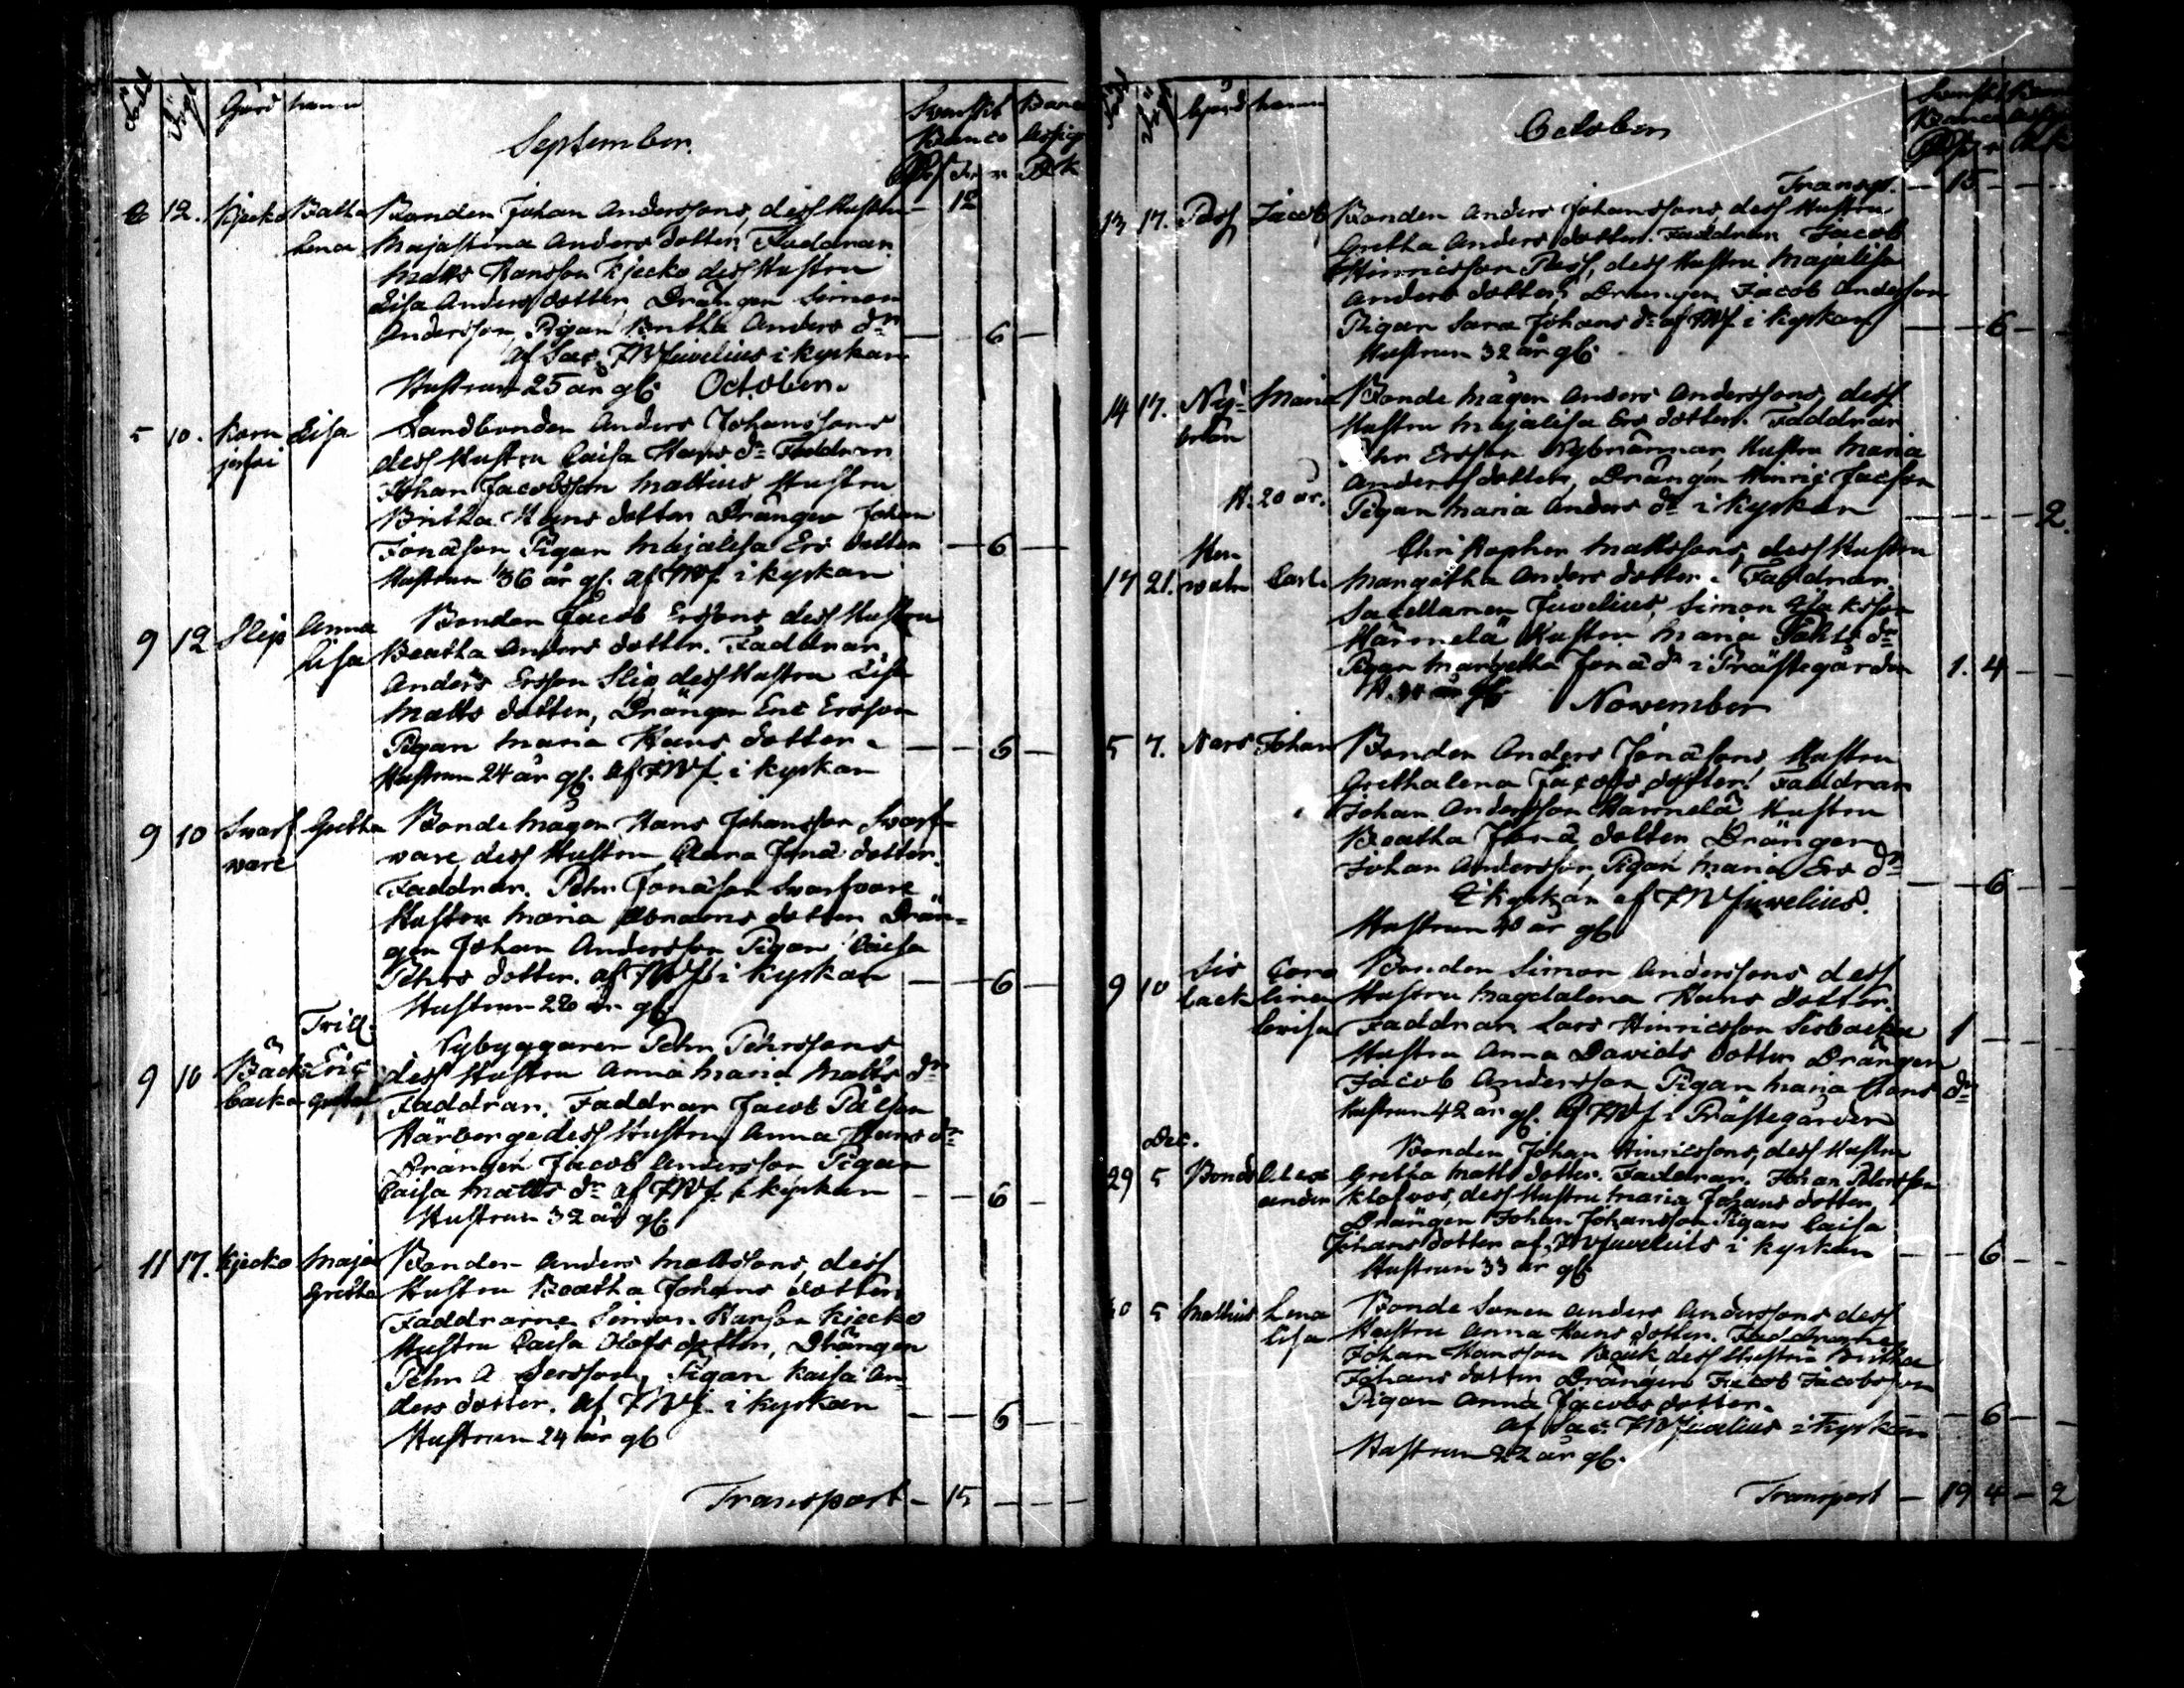 Född Döpt Gård namn
September.
Svenskt Banco
Banco Assig
Rd s r R k
12. Kjecko Batha Lena Bonden Johan Anderssons, dess Hustru — 12
Majastina Anders dotter, Faddrar
Matts Hansson Kjecko dess Hustru
Lisa Anders dotter, Drängen Simon
Andersson, Pigan Britha Anders dr — — 6 —
af Sac. FW Juvelius i kyrkan
Hustrun 25 år gl. October.
5 10. Lisa Landbonden Anders Johanssons
dess Hustru Caisa Hans dr Faddrar
Johan Jacobsson Mattius Hustru
Britha Hans dotter Drängen Johan
Jonason Pigan Majalisa Ers dotter — — 6 —
Hustrun 36 år gl. af FWJ. i kyrkan
9 12 Slip Anna Lisa Bonden Jacob Erssons dess Hustru
Beatha Anders dotter. Faddrar
Anders Ersson Slip dess Hustru Lisa
Matts dotter, Drängen Eric Ersson
Pigan Maria Hans dotter. — — 6 —
Hustrun 24 år gl. af FWJ. i kyrkan
9 10 Svarfvare Gretha Bonde mågen Hans Johansson Svarf-
vare, dess Hustru Clara Jona dotter.
Faddrar. Pehr Jonason Svarfvare
Hustru Maria Abrams dotter Drän-
gen Johan Andersson Pigan Caisa
Pehrs dotter. af FWJ i kyrkan — — 6 —
Hustrun år gl.
Trill.
Nybyggaren Pehr Pehrssons
9 10 Backa Eric dess Hustru Anna Maria Matts dr
Faddrar. Faddrar Jacob Pålson
Härberge dess Hustru Anna Hans dr
Drängen Jacob Andersson Pigan
Caisa Matts dr af FWJ. i kyrkan — — 6 —
Hustrun 32 år gl.
11 17. Kjecko Maja Gretha Bonden Anders Mattsons, dess
Hustru Beatha Johans dotter
Faddrarne Simon Hanson Kjecko
Hustru Caisa Olofs dotter, Drängen
Pehr A dersson, Pigan Kaisa An-
ders dotter. af FWJ. i kyrkan — — 6 —
Hustrun 24 år gl
Transport — 15 — — —
Gård namn
October
Svenskt
Banco
Transp. — 15 — — —
13 17. Pass Jacob Bonden Anders Johanssons, dess Hustru
Gretha Anders dotter. Faddrar Jacob
Hinricsson Pass, dess Hustru Majalisa
Anders dotter, Drängen Jacob Andersson
Pigan Sara Johans dr af FWJ. i kyrkan — — 6 —
Hustrun 32 år gl.
14 17. Nybrän Maria Bonde mågen Anders Anderssons, dess
Hustru Majalisa Ers dotter. Faddrar
Pehr Ersson Nybrännar Hustru Maria
Anders dotter, Drängen Hinric Jacsson
H. 20 år. Pigan Maria Anders dr i kyrkan — — — — 2.
Christopher Mattssons, dess Hustru
17 21. Carl Margetha Anders dotter. Faddrar.
Sacellanen Juvelius, Simon Isaksson
Härmelä Hustru Maria dr
Pigan Margetha Jona dr i Prästegården 1. 4 — —
November
5 7. Nars Johan Bonden Anders Jonasons Hustru
Grethalena Jacobs dotter. Faddrar
Johan Andersson Harmelä Hustru
Beatha Jona dotter Drängen
Johan Andersson, Pigan Maria Ers dr — — 6 —
I kyrkan af FW Juvelius.
Hustrun 40 år gl
9 10 Sisback Carolina Lovisa Bonden Simon Anderssons dess
Hustru Magdalena Hans dotter.
Faddrar Lars Hinricsson Sisbacka 1 — — —
Hustru Anna Davids dotter Drängen
Jacob Andersson Pigan Maria Hans dr
Hustrun 42 år gl. af FWJ i Prästegården
Dec.
Bonden Johan Hinricssons, dess Hustru
29 5 Bonds Alexander Gretha Matts dotter. Faddrar. Johan Petersson
Klöfvos, dess Hustru Maria Johans dotter
Drängen Johan Johansson Pigan Caisa
Johans dotter af FW Juvelius i kyrkan — — 6 —
Hustrun 33 år gl.
30 5 Mattius Lena Lisa Bonde Sonen Anders Anderssons dess
Hustru Anna Hans dotter. Faddrarne
Johan Hansson Back dess Hustru Britha
Johans dotter Drängen Jacob Jacobsson
Pigan Anna Jacobs dotter.
af Sac. FW Juvelius i kyrkan — 6 — —
Hustrun 22 år gl.
Transport — 19 4 — 2